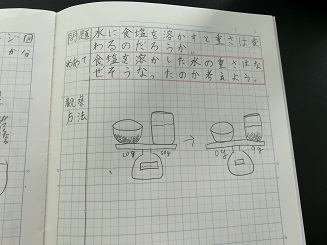 問題 水に食塩を溶かすと重さは変
わるのだろうか。
めあて 食塩を溶かした水の重さはな
ぜそうなったのか考えよう。
観察
方法